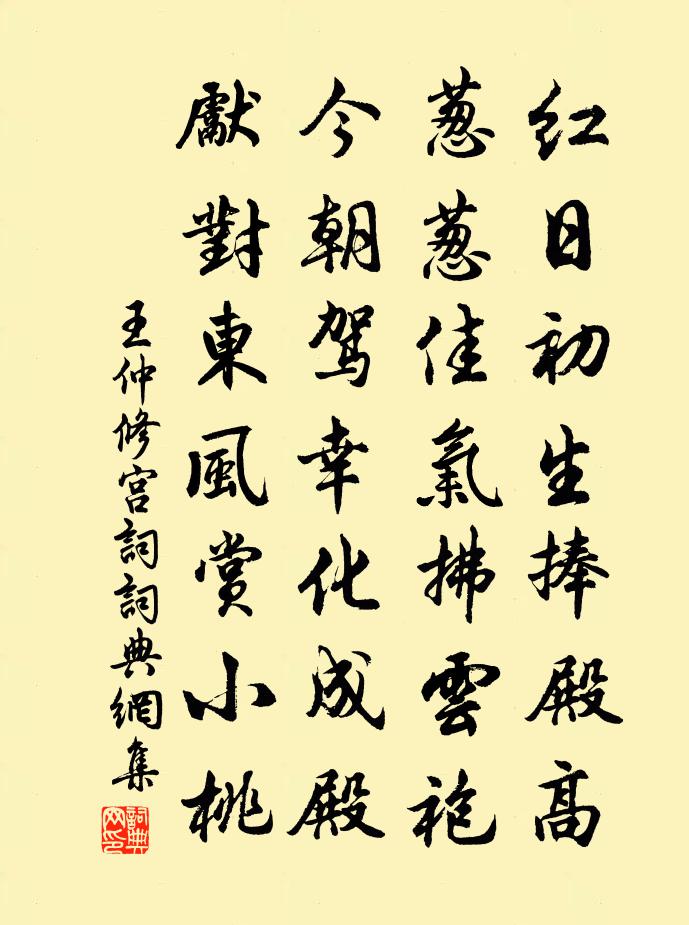 紅日初生捧殿高
葱葱佳氣拂雲袍
今朝駕幸化成殿
獻對東風賞小桃
王仲修宮詞詞典網集
詞典网印